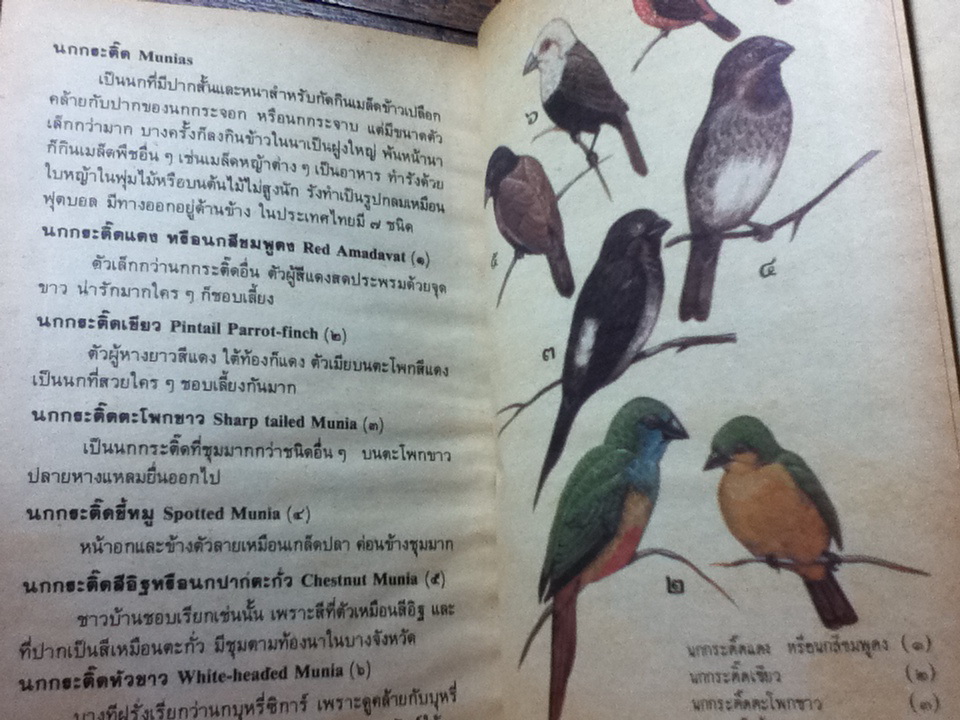 นกกระติ๊ด Munias
เป็นนกที่มีปากสั้นและหนาสำหรับกัดกินเมล็ดข้าวเปลือก
คล้ายกับปากของนกกระจอก หรือนกกระจาบ แต่มีขนาดตัว
เล็กกว่ามาก บางครั้งก็ลงกินข้าวในนาเป็นฝูงใหญ่ พ้นหน้านา
ก็กินเมล็ดพืชอื่น ๆ เช่นเมล็ดหญ้าต่าง ๆ เป็นอาหาร ทำรังด้วย
ใบหญ้าในพุ่มไม้หรือบนต้นไม้ไม่สูงนัก รังทำเป็นรูปกลมเหมือน
ฟุตบอล มีทางออกอยู่ด้านข้าง ในประเทศไทยมี ๗ ชนิด
นกกระติ๊ดแดง หรือนกสีชมพูดง Red Amadavat (๑)
ตัวเล็กกว่านกกระติ๊ดอื่น ตัวผู้สีแดงสดประพรมด้วยจุด
ขาว น่ารักมากใคร ๆ ก็ชอบเลี้ยง
นกกระติ๊ดเขียว Pintail Parrot-finch (๒)
ตัวผู้หางยาวสีแดง ใต้ท้องก็แดง ตัวเมียบนตะโพกสีแดง
เป็นนกที่สวยใคร ๆ ชอบเลี้ยงกันมาก
นกกระติ๊ดตะโพกขาว Sharp tailed Munia (๓)
เป็นนกกระติ๊ดที่ชุมมากกว่าชนิดอื่น ๆ บนตะโพกขาว
ปลายหางแหลมยื่นออกไป
นกกระติ๊ดขี้หมู Spotted Munia (๔)
หน้าอกและข้างตัวลายเหมือนเกล็ดปลา ค่อนข้างชุมมาก
นกกระติ๊ดสีอิฐหรือนกปากตะกั่ว Chestnut Munia (๕)
ชาวบ้านชอบเรียกเช่นนั้น เพราะสีที่ตัวเหมือนสีอิฐ และ
ที่ปากเป็นสีเหมือนตะกั่ว มีชุมตามท้องนาในบางจังหวัด
นกกระติ๊ดหัวขาว White-headed Munia (๖)
บางทีฝรั่งเรียกว่านกบุหรี่ซิการ์ เพราะดูคล้ายกับบุหรี่
๖
๕
๔
๓
๒
นกกระติ๊ดแดง หรือนกสีชมพูดง (๑)
นกกระติ๊ดเขียว (๒)
นกกระติ๊ดตะโพกขาว (๓)